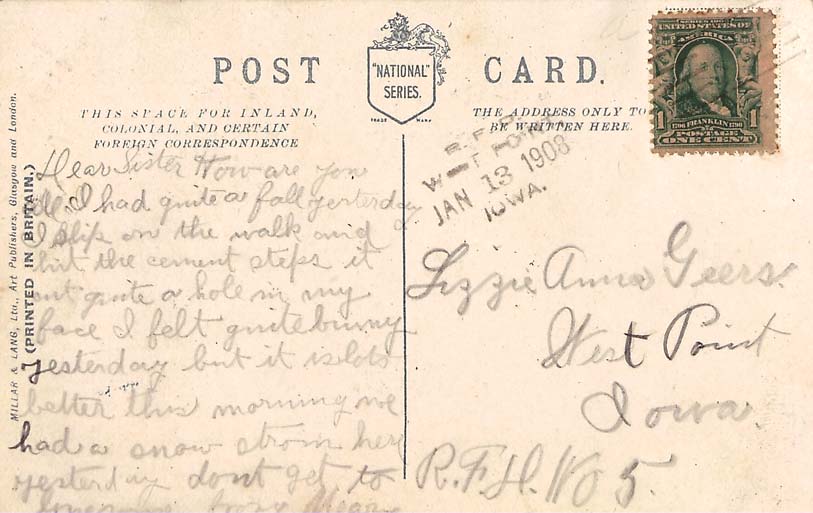 POST CARD.
"NATIONAL"
SERIES.
TRADE MARK
THIS SPACE FOR INLAND,
COLONIAL, AND CERTAIN
FOREIGN CORRESPONDENCE
THE ADDRESS ONLY TO
BE WRITTEN HERE.
SERIES 1902
UNITED STATES OF
AMERICA
1 1
1706 FRANKLIN 1790
POSTAGE
ONE CENT
R.F.D.
JAN 13 1908
IOWA.
MILLAR & LANG, Ltd., Art Publishers, Glasgow and London.
(PRINTED IN BRITAIN.)
Dear Sister How are you
all I had quite a fall yesterday
I slip on the walk and
hit the cement steps it
cut quite a hole in my
face I felt quite bunny
yesterday but it is lots
better this morning we
had a snow strom here
yesterday dont get to
lonesome from Mary
Lizzie Anna Geers.
West Point
Iowa.
R.F.D. No 5.